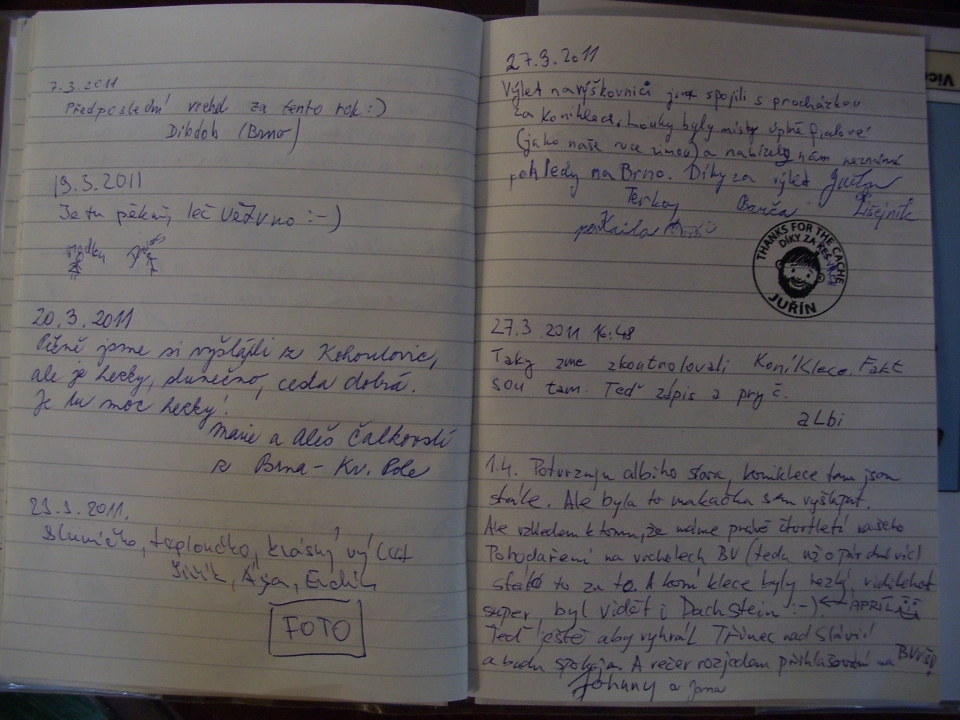 7.3.2011
Předposlední vrchol za tento rok :)
Dibdoh (Brno)
19.3.2011
Je tu pěkně, leč větrno :-)
20.3.2011
Pěšně jsme si vyšlápli z Kohoutovic,
ale je hezky, slunečno, cesta dobrá.
Je tu moc hezky!
Marie a Aleš Čalkovští
z Brna - Kr. Pole
29.3.2011.
Sluníčko, teploučko, krásný výlet
Jiřík, Ája,
FOTO
27.3.2011
Výlet na výškovnici jsme spojili s procházkou
za konikleci. Louky byly místy úplně fialové
(jako naše ruce zimou) a nabízely nám neznámé
pohledy na Brno. Díky za výlet
Terka Barča Lišejník
THANKS FOR THE CACHE
DÍKY ZA
JUŘÍN
27.3.2011 16:48
Taky sme zkontrolovali Koniklece. Fakt
sou tam. Teď zápis a pryč.
aLbi
1.4. Potvrzuju albiho slova, koniklece tam jsou
stále. Ale byla to makačka sem vyšlápnt.
Ale vzhledem k tomu, že máme právě čtvrtletí našeho
Pohodaření na vrcholech BV (teda už o pár dní víc)
stálo to za to. A koniklece byly hezký, viditelnost
super, byl vidět i Dachstein :-) ← APRÍL
Teď ještě aby vyhrál Třinec nad Slávií
a budu spokojen. A večer rozjedem přihlašování na BVVŠP
Johnny a Jana